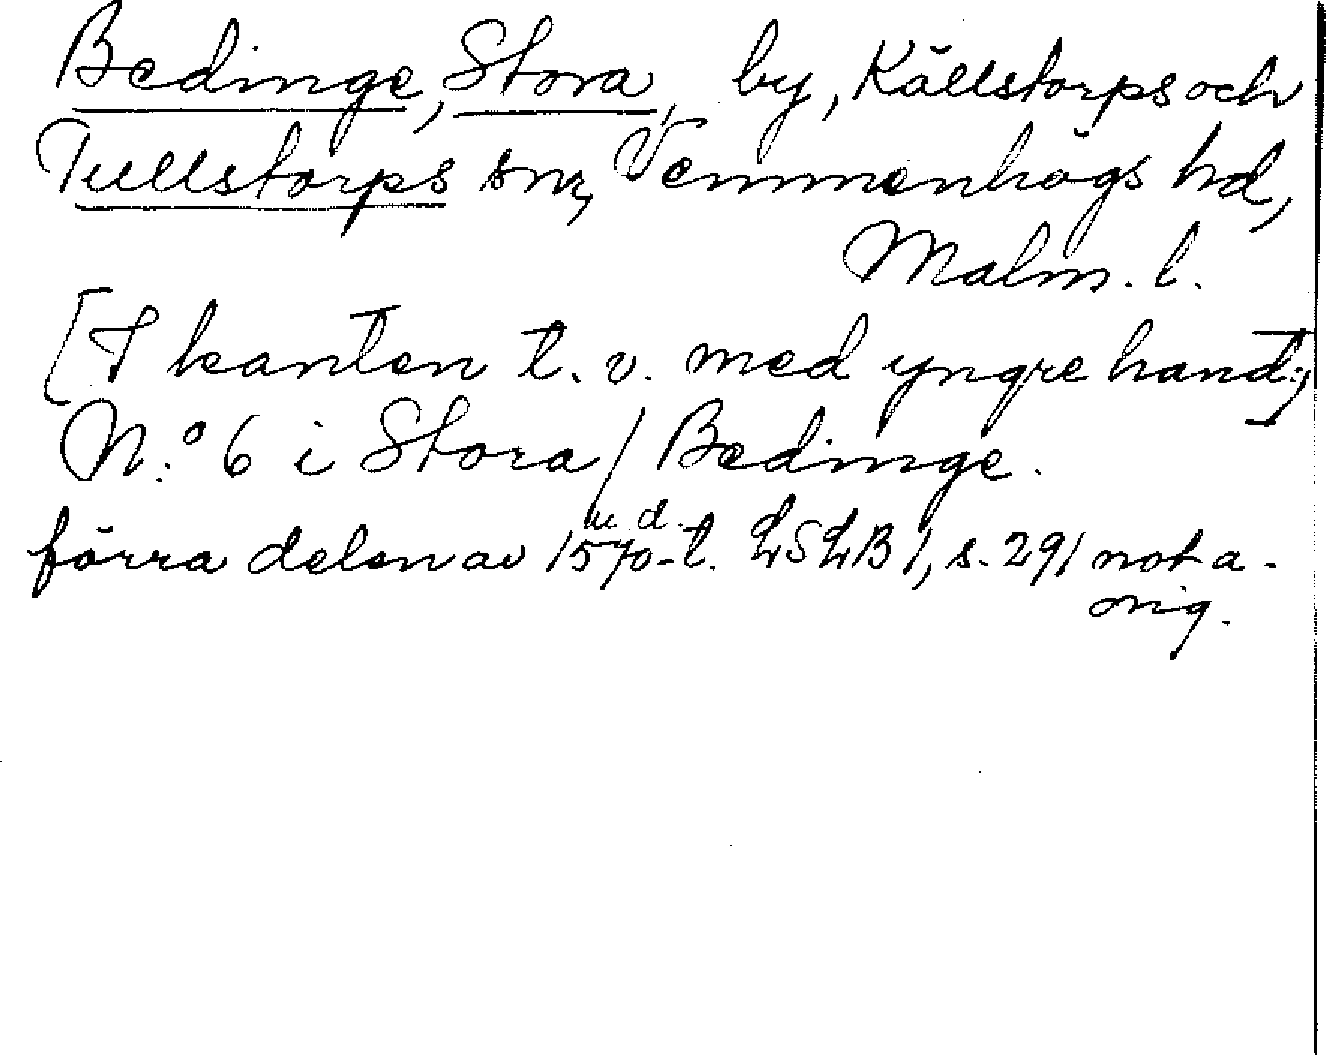 Bedinge, Stora, by, Källstorps och
Tullstorps snr, Vemmenhögs hd,
Malm. l.
[I kanten t. v. med yngre hand:]
N:o 6 i Stora / Bedinge.
förra delen av 1570-t. LSLB 1, s. 291 not a.
orig.